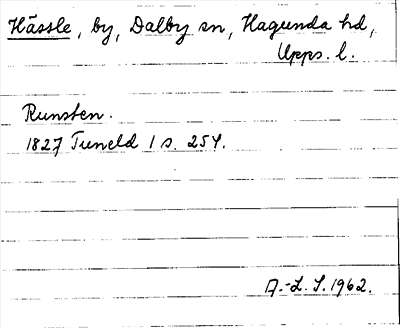 Hässle, by, Dalby sn, Hagunda hd,
Upps. l.
Runsten.
1827 Tuneld 1 s. 254.
A.-L. S. 1962.